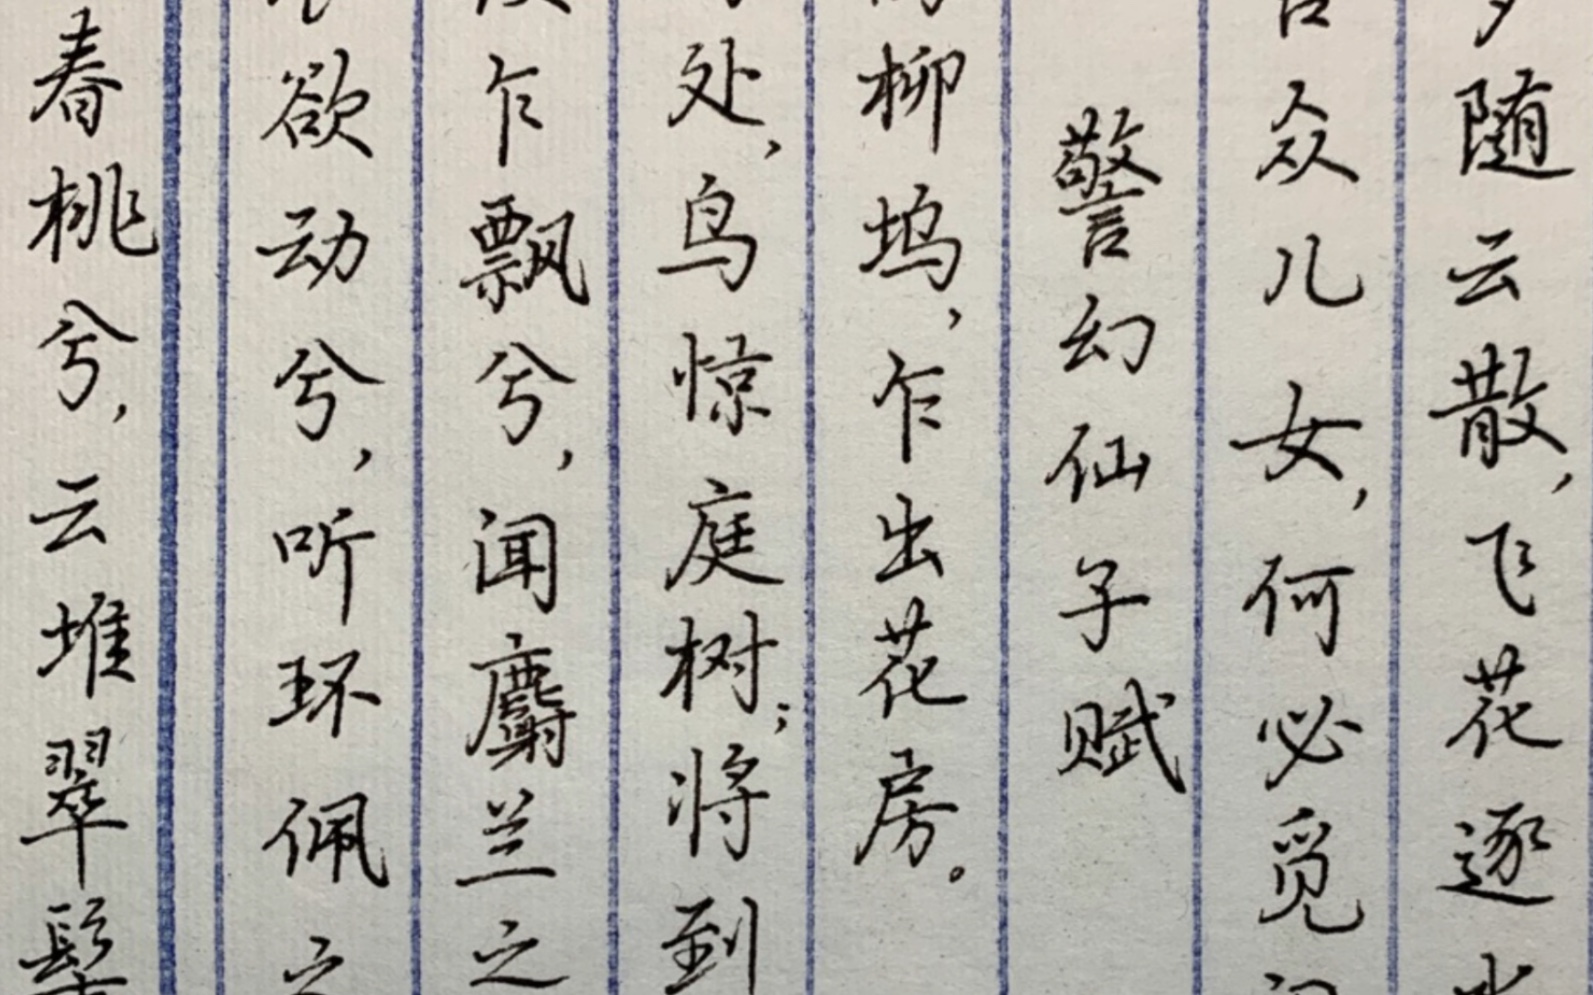 随云散，飞花逐
众儿女，何必觅
警幻仙子赋
柳坞，乍出花房。
处，鸟惊庭树；将到
乍飘兮，闻麝兰之
欲动兮，听环佩之
春桃兮，云堆翠髻